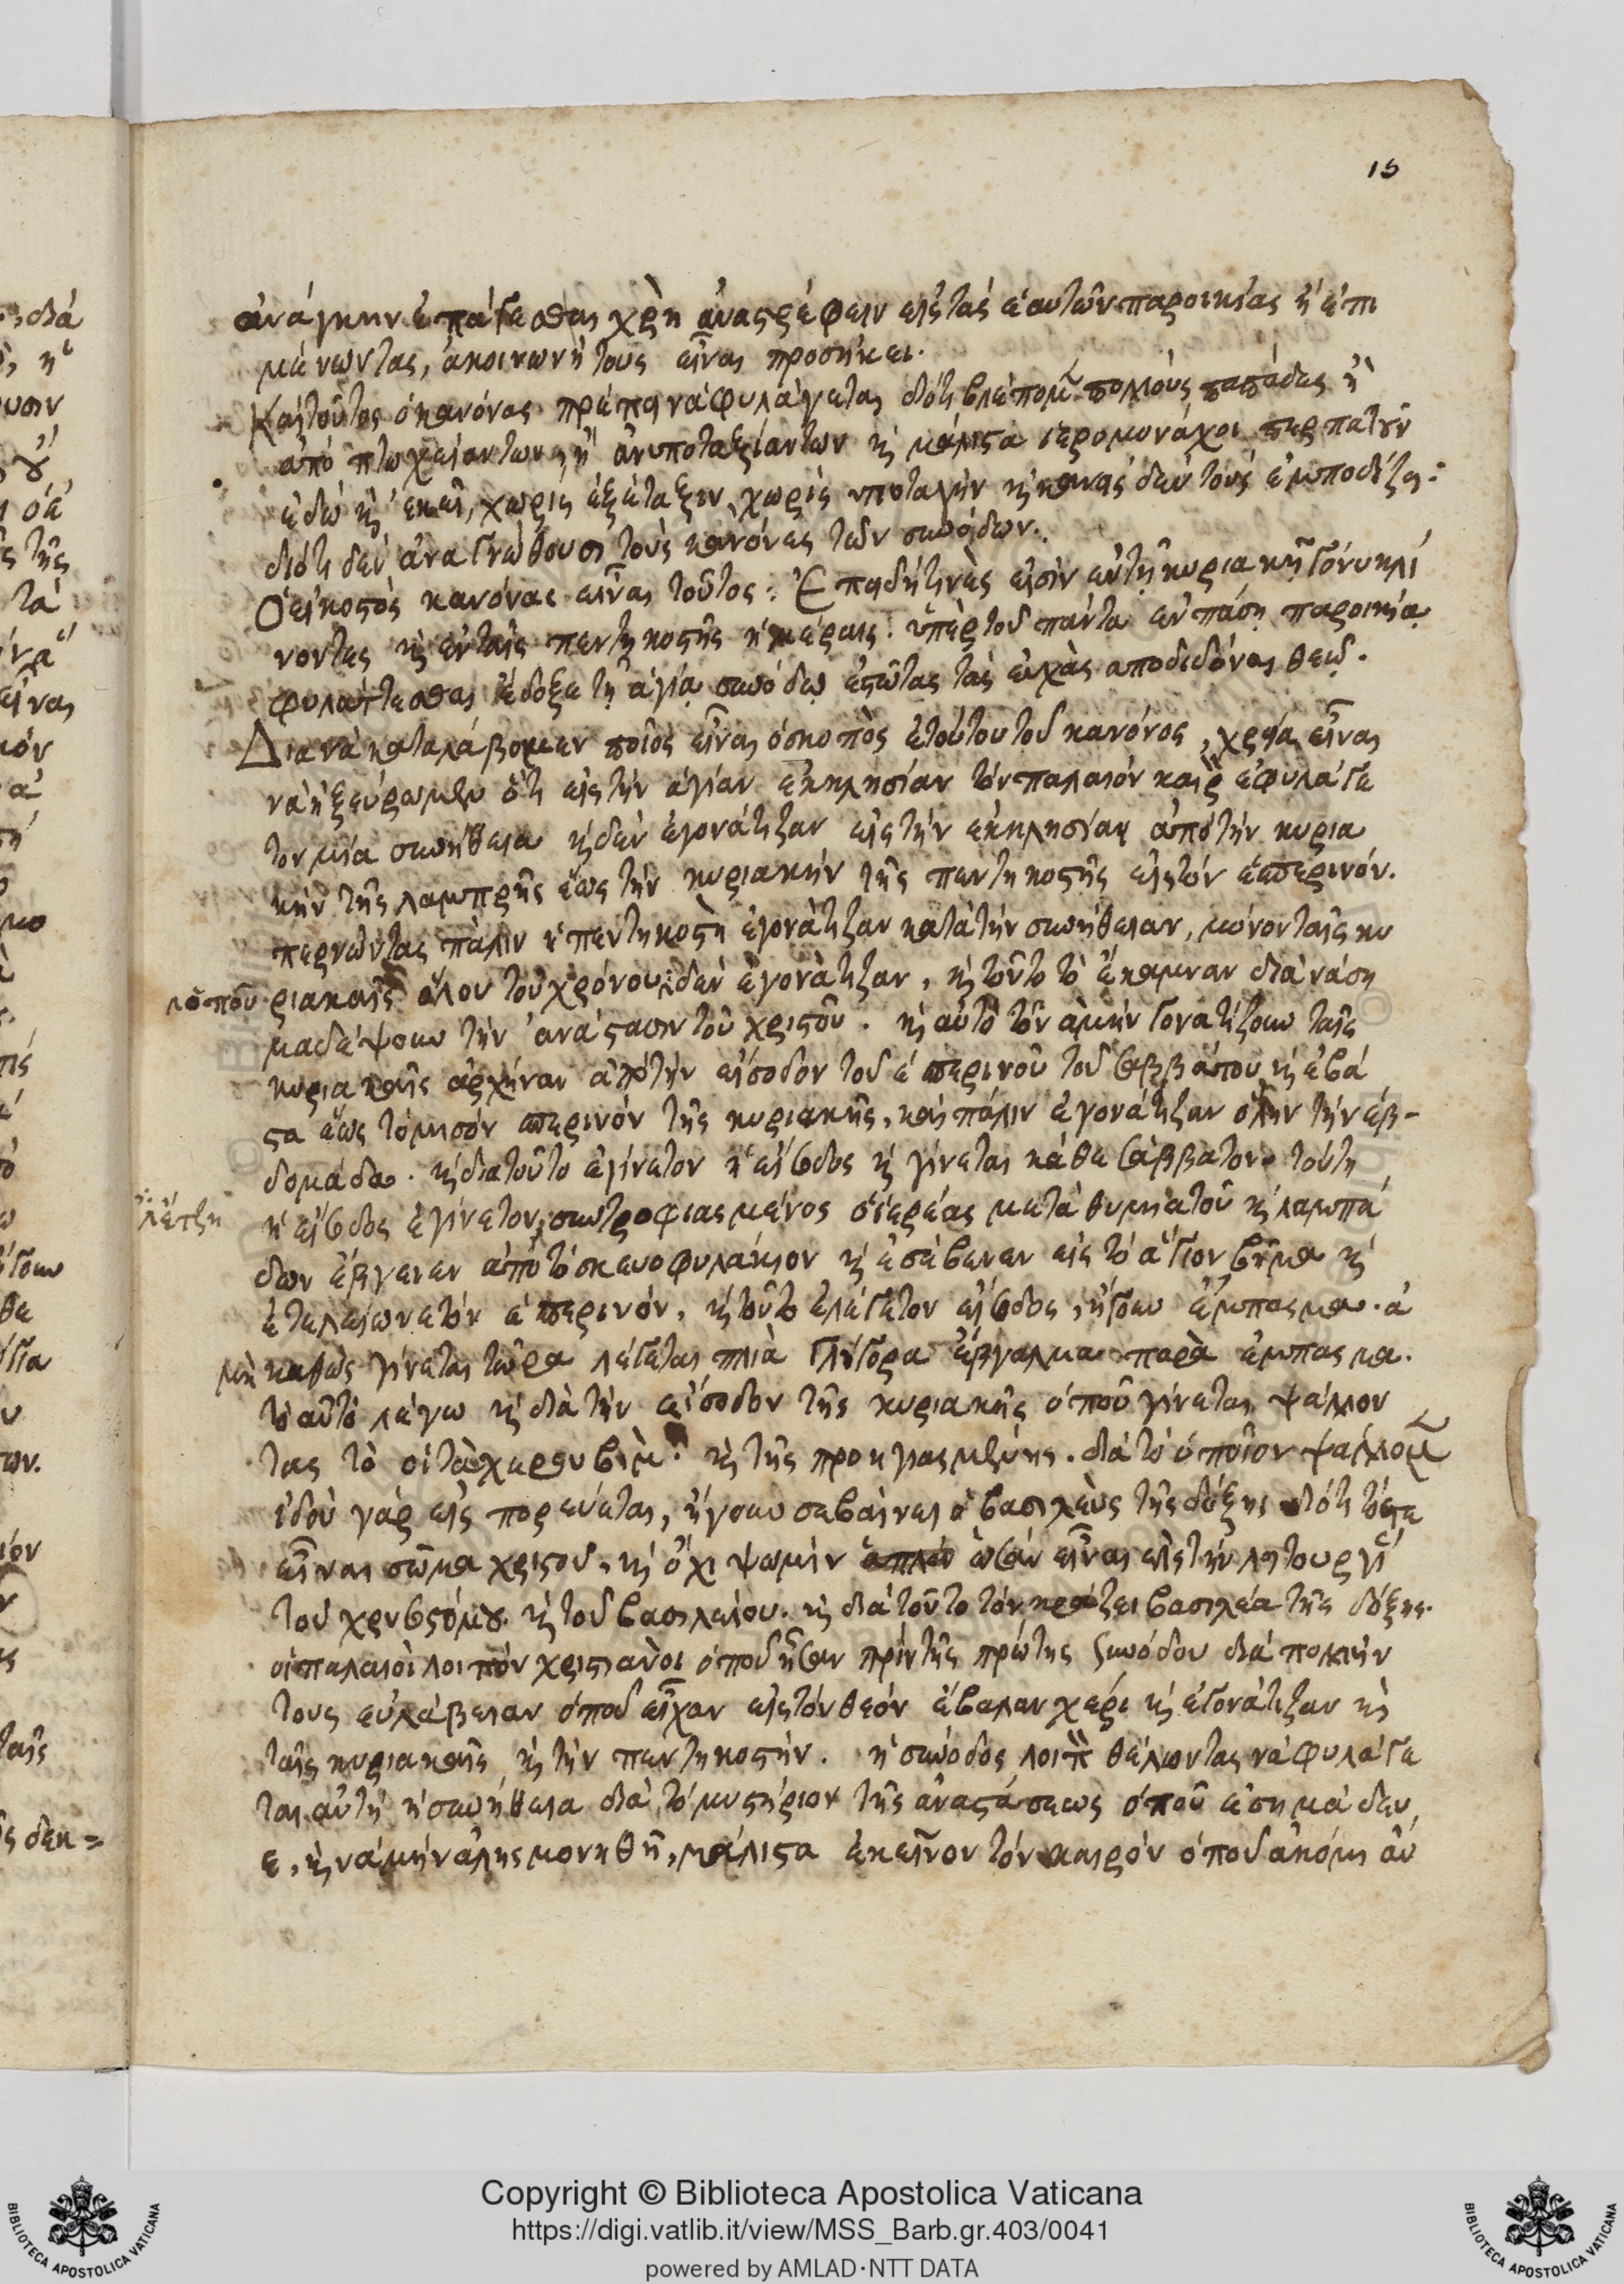 15
ἀνάγκην ἐπάγεσθαι χρὴ ἀναστρέφειν εἰς τὰς ἑαυτῶν παροικίας ἢ ἐπι
μένωντας, ἀκοινωνήτους εἶναι προσήκει.
Καὶ τοῦτος ὁ κανόνας πρέπει νὰ φυλάγεται διότι βλέπομ̃ πολλοὺς παπάδες ἢ
ἀπὸ πτωχείαν των, ἢ ἀνυποταξίαν των κ̀ μάλιστα ἱερομονάχοι περπατοῦν
ἐδῶ κ̀ ἐκεῖ, χωρὶς ἐξέταξιν, χωρὶς υποταγὴν κ̀ κανεὶς δὲν τοὺς ἐμποδίζει:
διότι δὲν ἀναγνώθουσι τοὺς κανόνες τῶν συνόδων.
Ὁ εἰκοστὸς κανόνας εἶναι τοῦτος: Ἐπειδή τινὲς εἰσὶν ἐν τῇ κυριακῇ γόνυ κλί
νοντες κ̀ ἐν ταῖς πεντηκοστῆς ἡμέραις: ὑπὲρ τοῦ πάντα ἐν πάσῃ παροικίᾳ
φυλάττεσθαι ἔδοξε τῇ ἁγίᾳ συνόδῳ ἑστῶτας τὰς εὐχὰς αποδιδόναι θεῷ.
Διὰ νὰ καταλάβομεν ποῖος εἶναι ὁ σκοπὸς ἐτούτου τοῦ κανόνος, χρεία εἶναι
νὰ ἠξεύρωμεν ὅτι εἰς τὴν ἁγίαν ἐκκλησίαν τὸν παλαιὸν καιρ ἐφυλάγε
τον μία συνήθεια κ̀ δὲν ἐγονάτιζαν εἰς τὴν ἐκκλησίαν ἀπὸ τὴν κυρια
κὴν τῆς λαμπρῆς ἕως τὴν κυριακὴν τῆς πεντηκοστῆς εἰς τὸν ἑσπερινόν.
περνῶντας πάλιν ἡ πεντηκοστὴ ἐγονάτιζαν κατὰ τὴν συνήθειαν, μόνον ταῖς κυ
ριακαῖς ὅλου τοῦ χρόνου δὲν ἐγονάτιζαν, κ̀ τοῦτο τὸ ἔκαμναν διὰ νὰ ση
μαδέψουν τὴν ἀνάστασιν τοῦ χριστοῦ. κ̀ αὐτὸ τὸν ἀμὴν γονατίζουν ταῖς
κυριακαῖς ἀρχήναν ἀπὸ τὴν εἴσοδον τοῦ ἑσπερινοῦ τοῦ σαββάτου κ̀ ἐβά
στα ἕως τὸ μισὸν σπερινὸν τῆς κυριακῆς, καὶ πάλιν ἐγονάτιζαν ὅλην τὴν ἑβ-
δομάδα. κ̀ διὰ τοῦτο ἐγίνετον ἡ εἴσοδος κ̀ γίνεται κάθε σάββατον. τούτη
ἡ εἴσοδος ἐγίνετον, συντροφιασμένος ὁ ἱερέας μετὰ θυμιατοῦ κ̀ λαμπά
δων ἔβγαινεν ἀπὸ τὸ σκευοφυλάκιον κ̀ ἐσέβαινεν εἰς τὸ ἅγιον βῆμα κ̀
ἐτελείωνε τὸν ἑσπερινόν, κ̀ τοῦτο ἐλέγετον εἴσοδος, ἤγουν ἔμπασμα. ἀ
μὴ καθὼς γίνεται τώρα λέγεται πλιὰ γλήγορα ἔβγαλμα παρὰ ἔμπασμα.
τὸ αὐτὸ λέγω κ̀ διὰ τὴν εἴσοδον τῆς κυριακῆς ὁποῦ γίνεται ψάλλον
τας τὸ οἱ τὰ χερουβὶμ: κ̀ τῆς προηγιασμένης. διὰ τὸ ὁποῖον ψάλλομ̃
ἰδοὺ γὰρ εἰς πορεύεται, ἤγουν σεβαίνει ὁ βασιλεὺς τῆς δόξης διότι τότε
εἶναι σῶμα χριστοῦ, κ̀ ὄχι ψωμὶν ὡσὰν εἶναι εἰς τὴν λητουργί
τοῦ χρυσοστόμου κ̀ τοῦ βασιλείου. κ̀ διὰ τοῦτο τὸν κράζει βασιλέα τῆς δόξης.
οἱ παλαιοὶ λοιπὸν χριστιανοὶ ὁποῦ ἦσαν πρὶν τῆς πρώτης συνόδου διὰ πολλὴν
τους εὐλάβειαν ὁποῦ εἶχαν εἰς τὸν θεὸν ἔβαλαν χέρι κ̀ ἐγονάτιζαν κ̀
ταῖς κυριακαῖς κ̀ τὴν πεντηκοστήν. ἡ σύνοδος λοιπ̀ θέλωντας νὰ φυλάγε
ται αὐτὴ ἡ συνήθεια διὰ τὸ μυστήριον τῆς ἀναστάσεως ὁποῦ ἐσημάδευ
ε, κ̀ νὰ μὴν ἀλησμονηθῇ, μάλιστα ἐκεῖνον τὸν καιρὸν ὁποῦ ἀκόμη ἀν
Copyright © Biblioteca Apostolica Vaticana
https://digi.vatlib.it/view/MSS_Barb.gr.403/0041
powered by AMLAD·NTT DATA
BIBLIOTECA APOSTOLICA VATICANA
BIBLIOTECA APOSTOLICA VATICANA